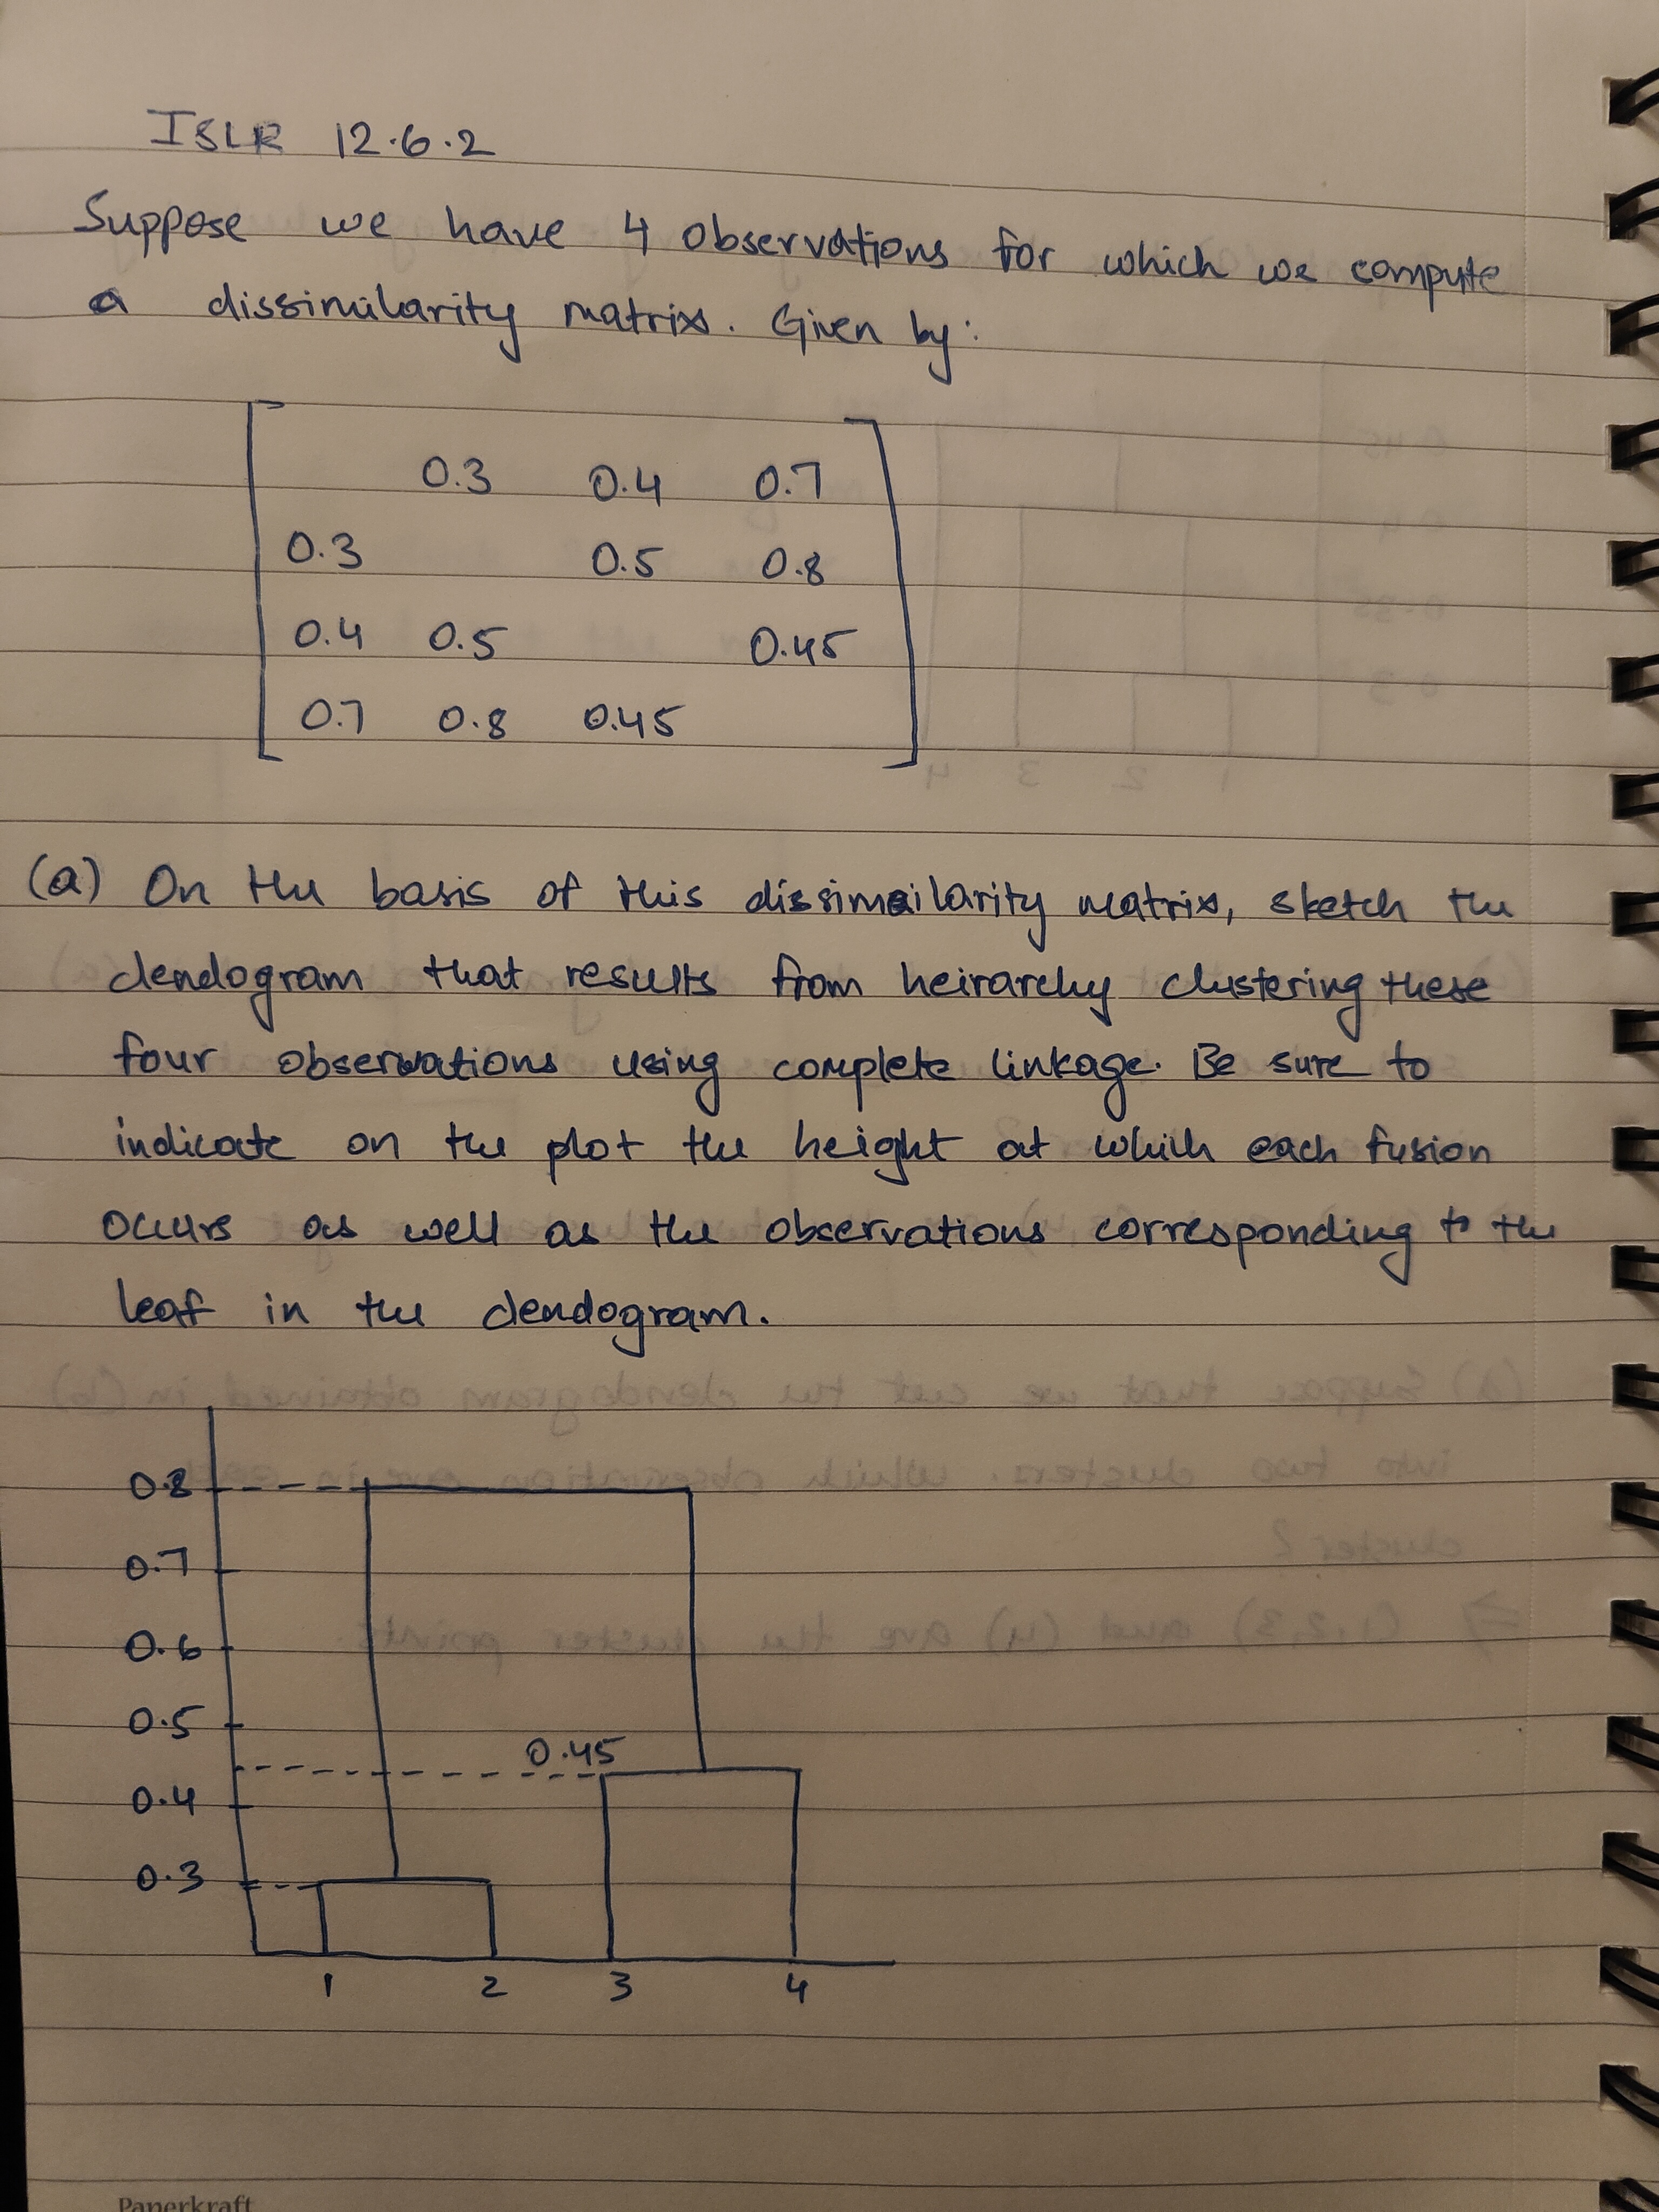 ISLR 12.6.2
Suppose we have 4 observations for which we compute
a dissimilarity matrix. Given by:
0.3 0.4 0.7
0.3 0.5 0.8
0.4 0.5 0.45
0.7 0.8 0.45
(a) On the basis of this dissimailarity matrix, sketch the
dendogram that results from heirarchy clustering these
four observations using complete linkage. Be sure to
indicate on the plot the height at which each fusion
occurs as well as the observations corresponding to the
leaf in the dendogram.
0.8
0.7
0.6
0.5
0.45
0.4
0.3
1 2 3 4
Paperkraft